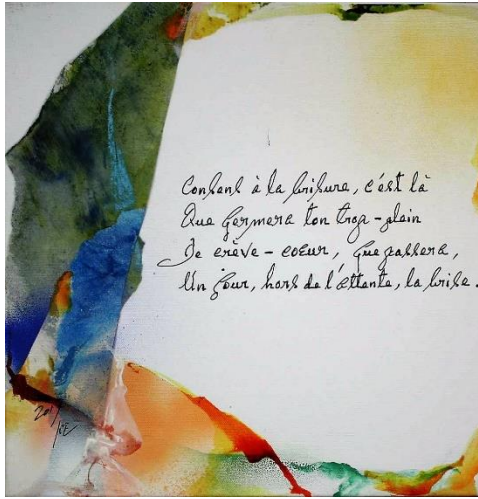 Consens à la brisure, c'est là
Que germera ton trop-plein
De crève-coeur, que passera,
Un jour, hors de l'attente, la brise.